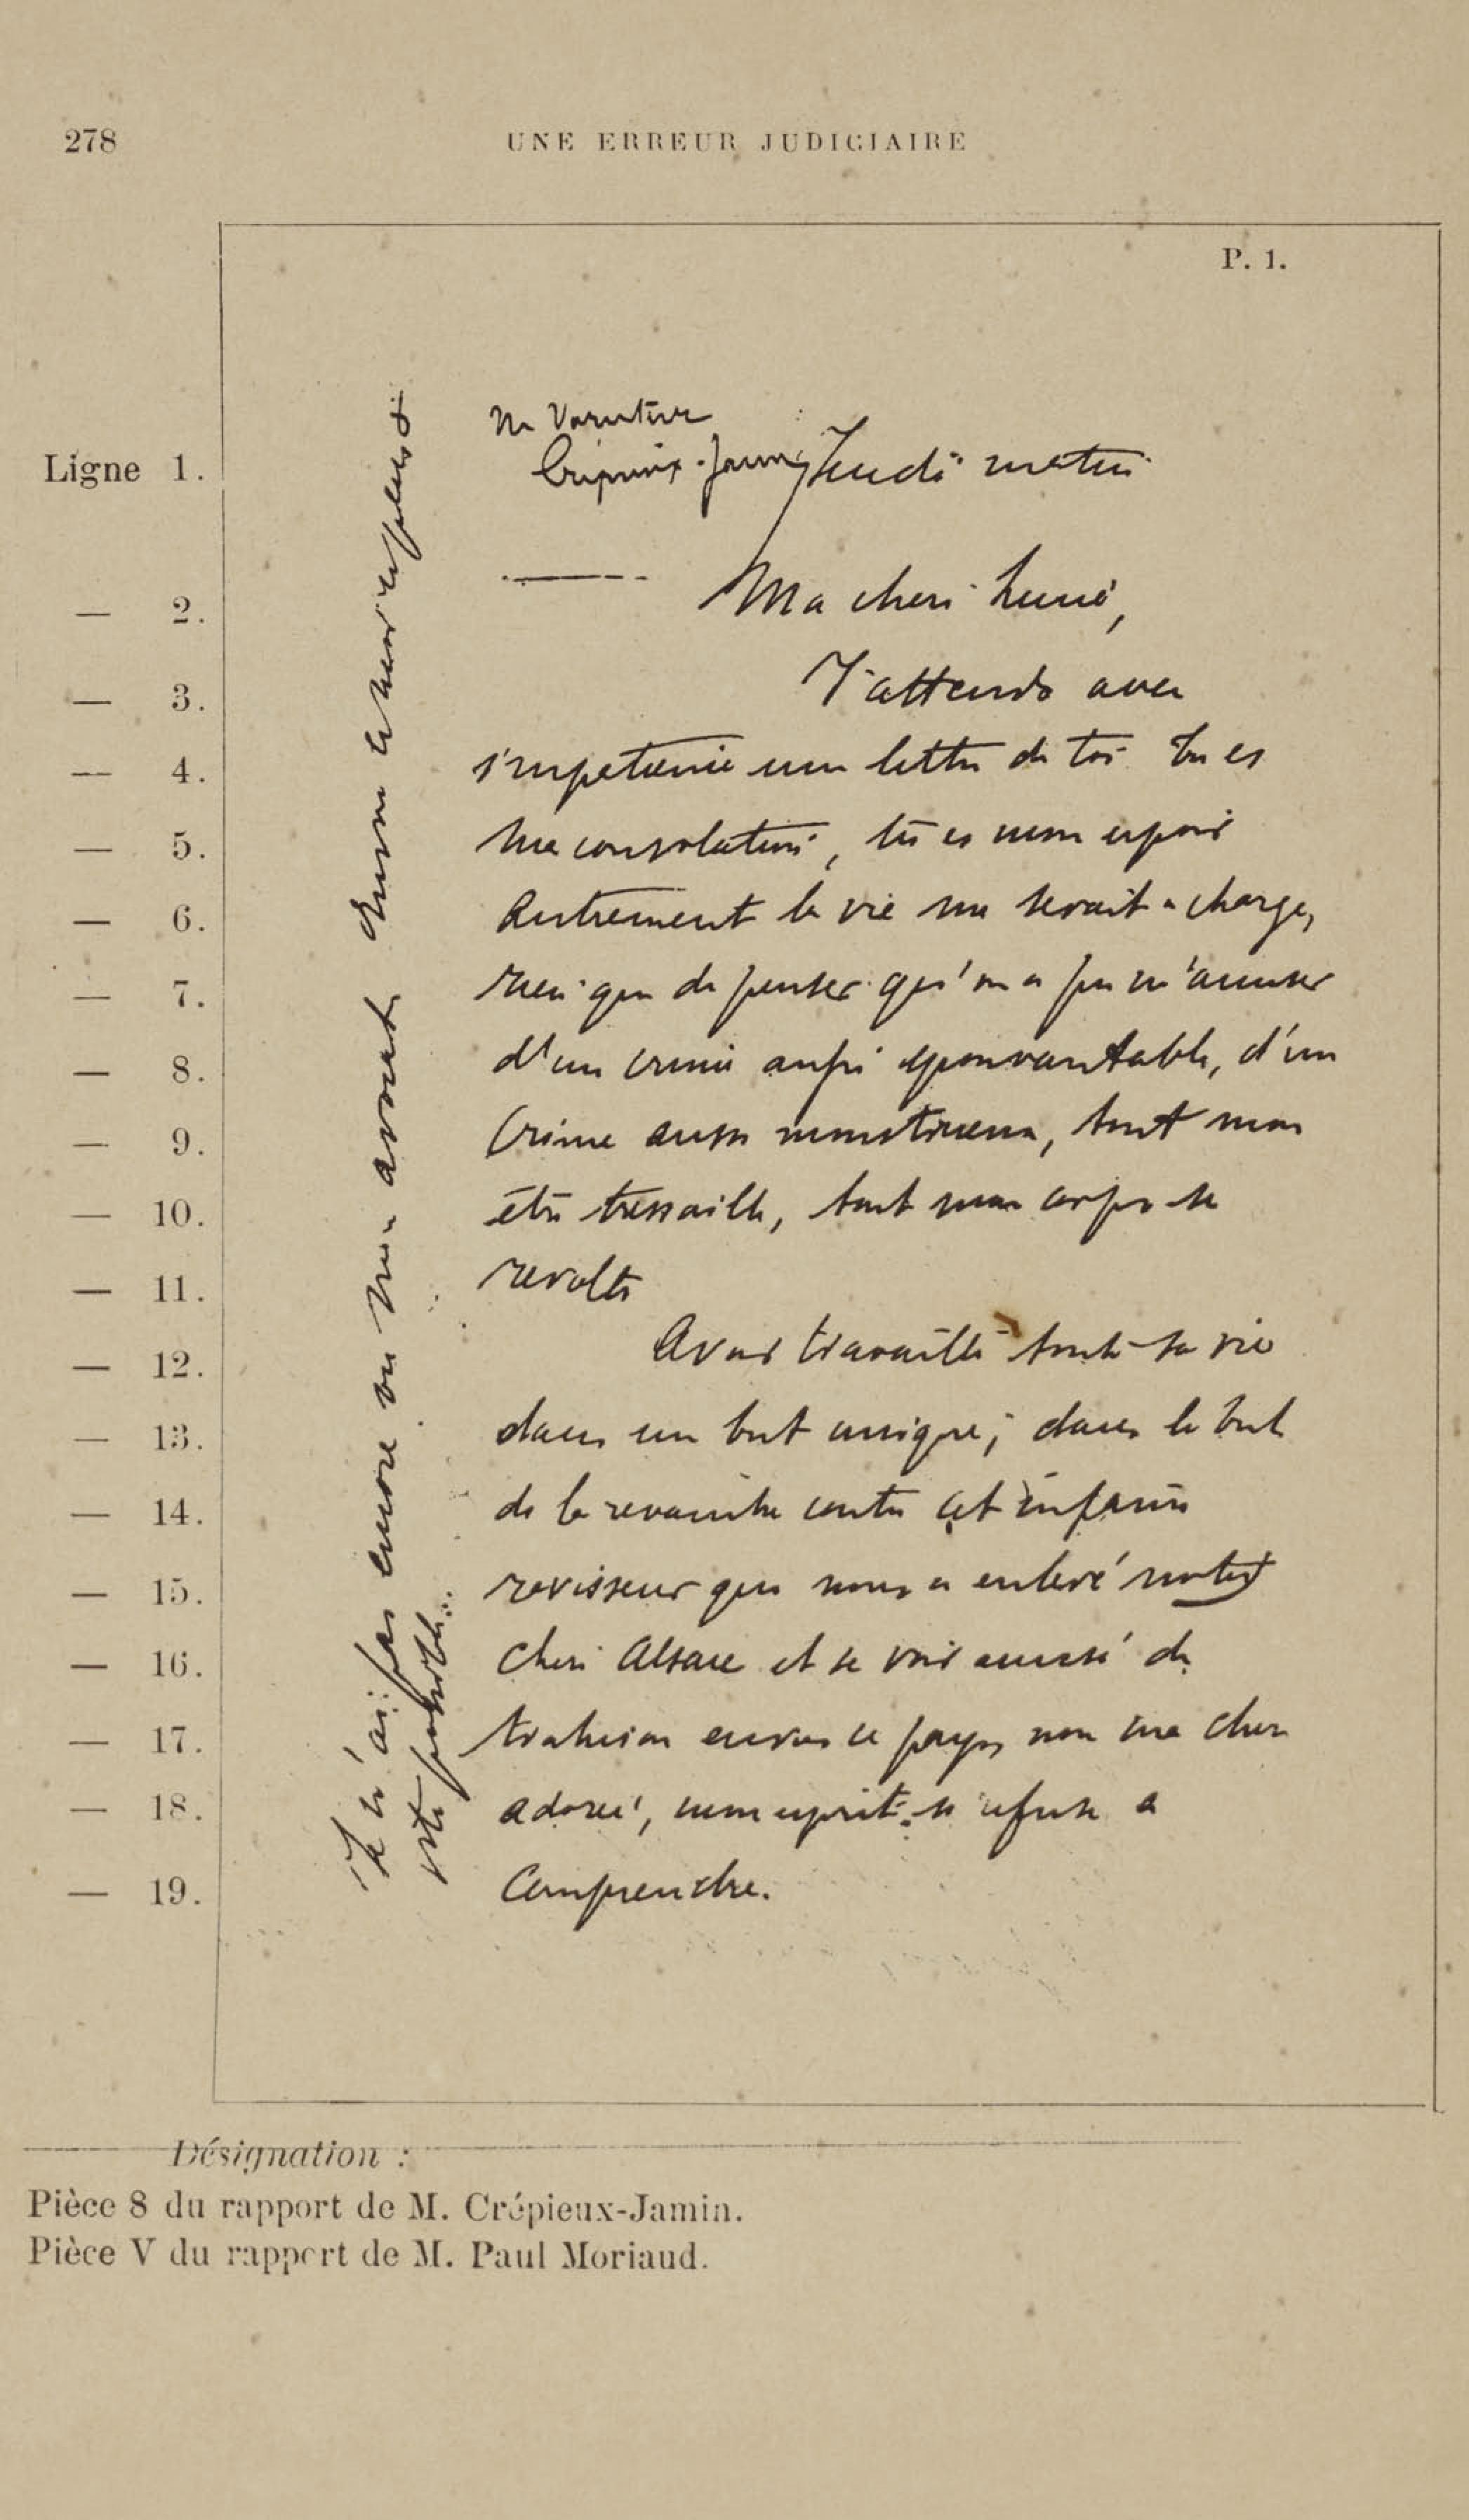 278
UNE ERREUR JUDICIAIRE
P. 1.
Ne Varietur
Ligne 1. Crépieux-Jamin Jeudi matin
— 2. Ma chère Lucie,
— 3. J'attends avec
— 4. impatience une lettre de toi. Tu es
— 5. ma consolation, tu es mon espoir
— 6. autrement la vie me serait à charge,
— 7. Rien que de penser qu'on a pu m'accuser
— 8. d'un crime aussi épouvantable, d'un
— 9. crime aussi monstrueux, tout mon
— 10. être tressaille, tout mon corps se
— 11. révolte
— 12. Avoir travaillé toute sa vie
— 13. dans un but unique, dans le but
— 14. de la revanche contre cet infâme
— 15. ravisseur qui nous a enlevé notre
— 16. chère Alsace et se voir accusé de
— 17. trahison envers ce pays, non ma chère
— 18. adorée, mon esprit se refuse à
— 19. comprendre.
Je n'ai pas encore vu mon avocat
Désignation :
Pièce 8 du rapport de M. Crépieux-Jamin.
Pièce V du rapport de M. Paul Moriaud.